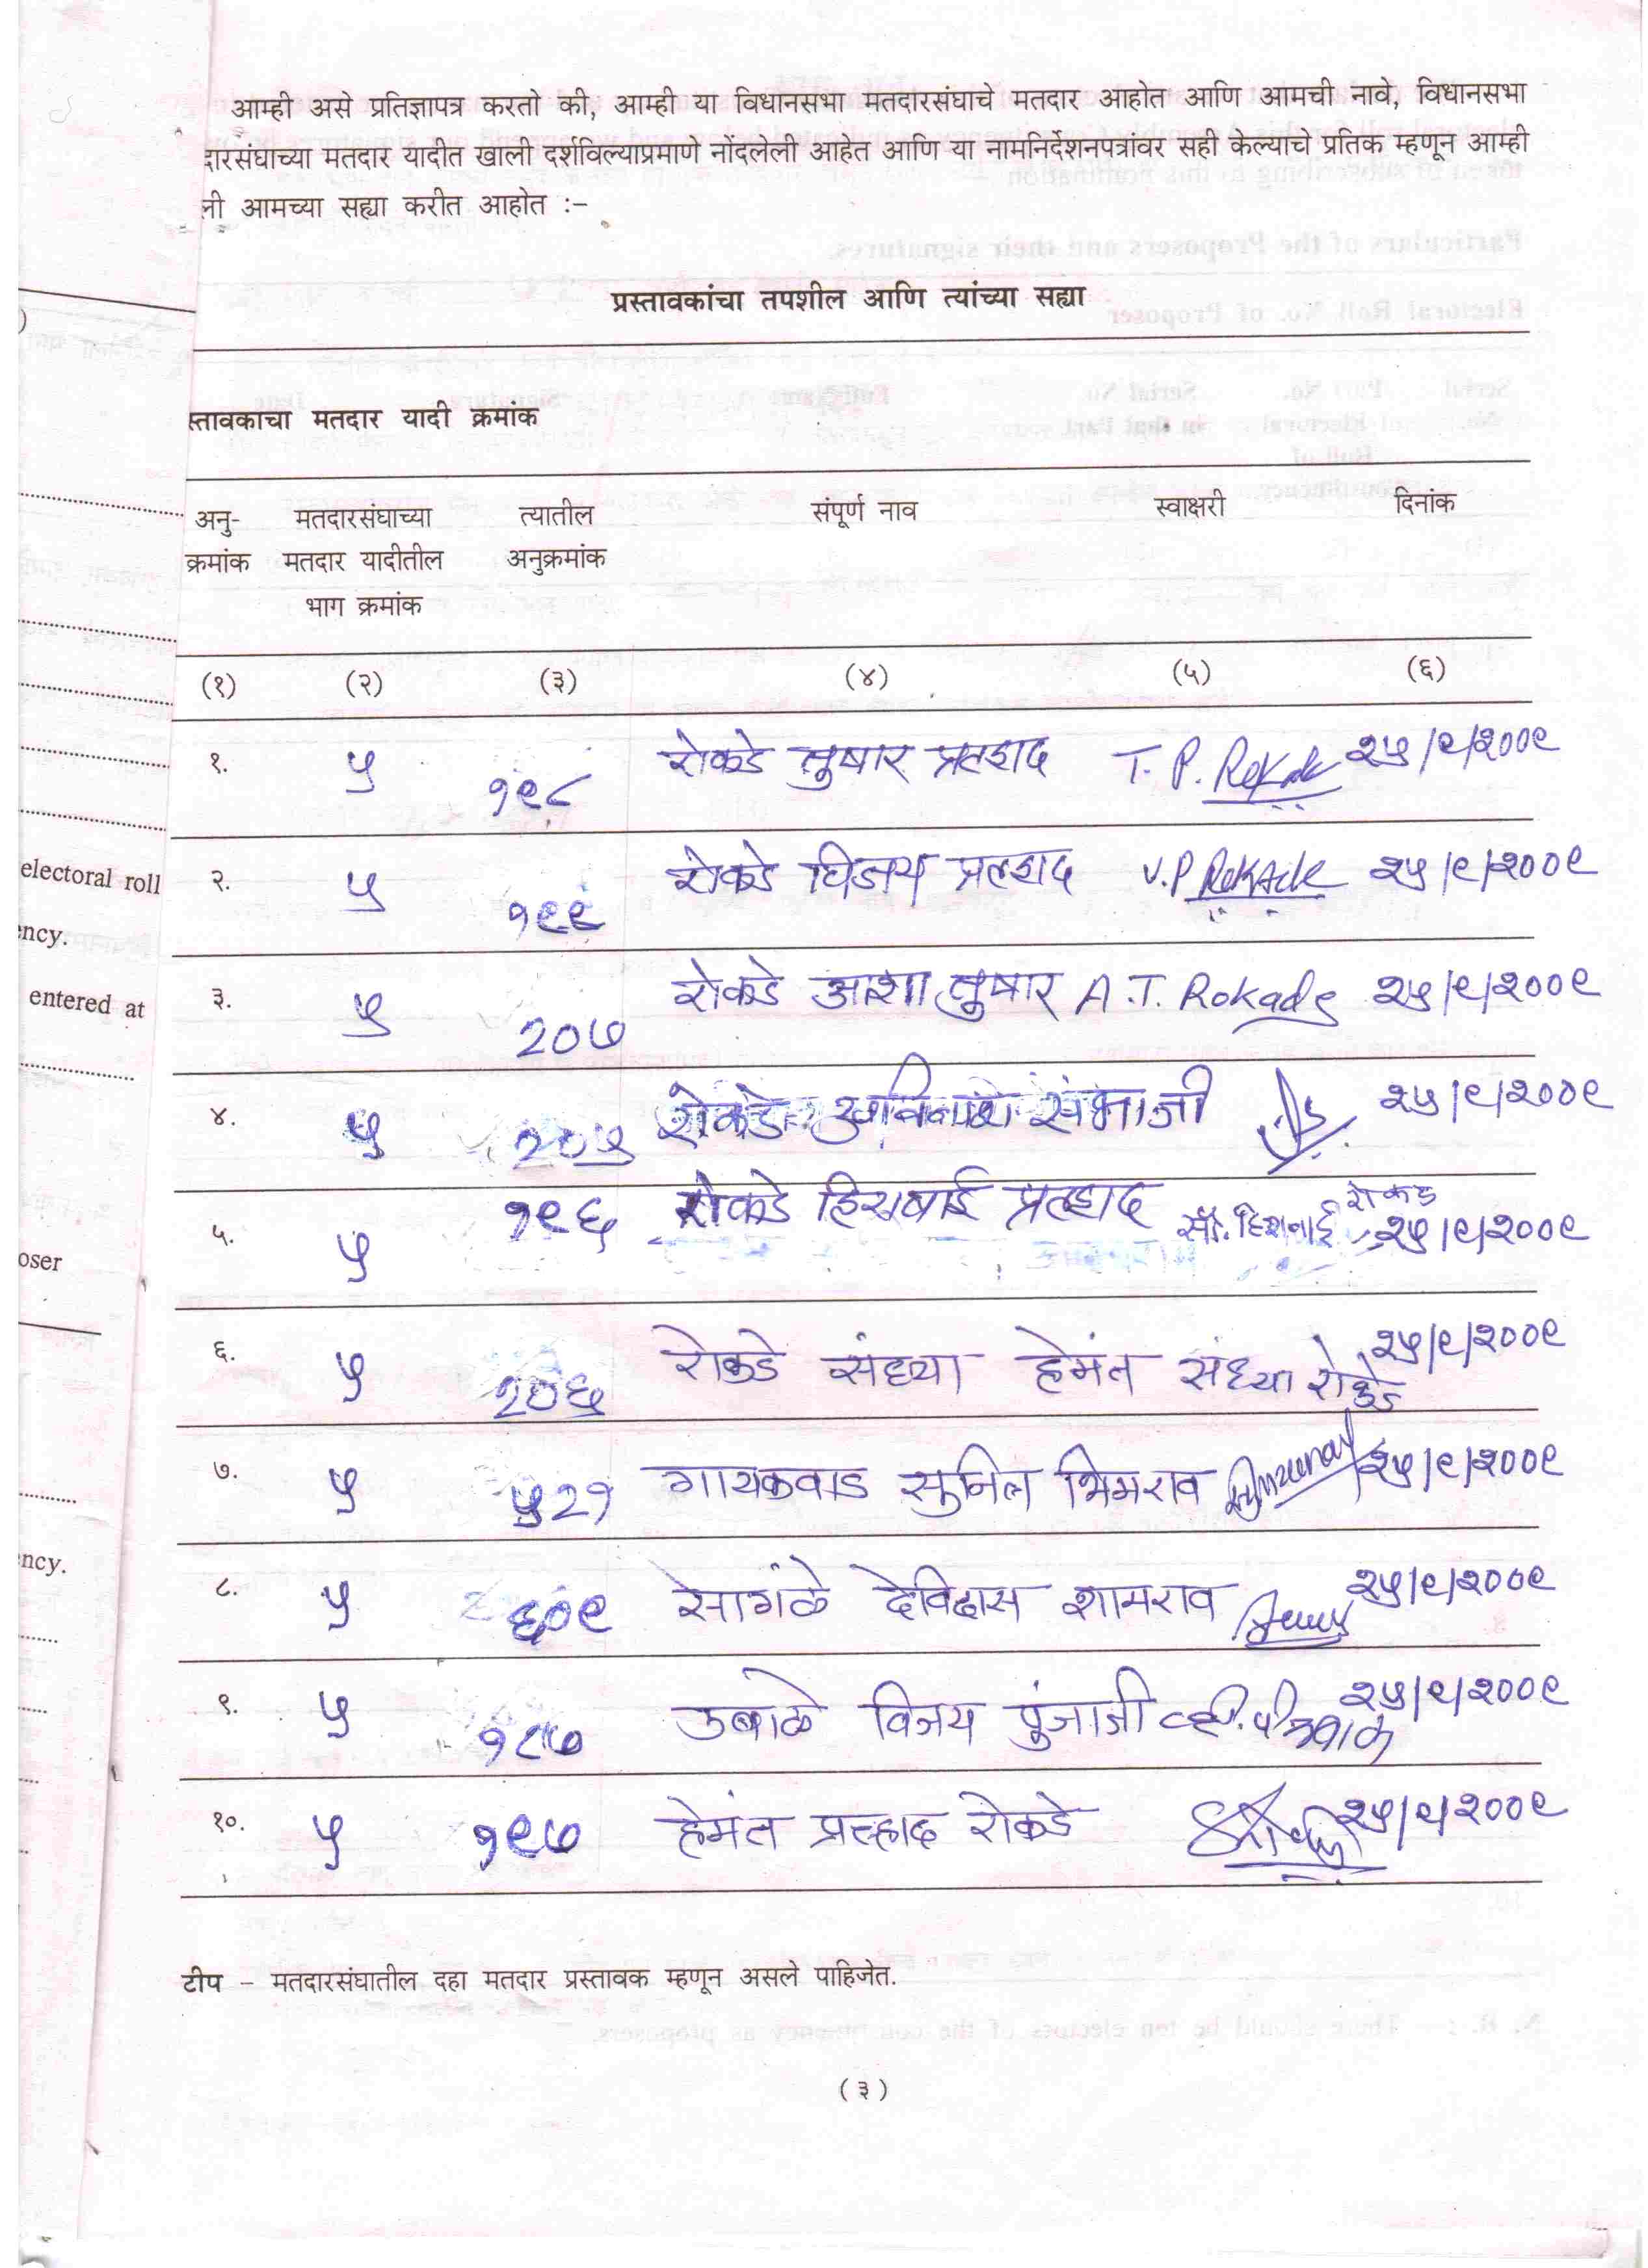 आम्ही असे प्रतिज्ञापत्र करतो की, आम्ही या विधानसभा मतदारसंघाचे मतदार आहोत आणि आमची नावे, विधानसभा
दारसंघाच्या मतदार यादीत खाली दर्शविल्याप्रमाणे नोंदलेली आहेत आणि या नामनिर्देशनपत्रांवर सही केल्याचे प्रतिक म्हणून आम्ही
नी आमच्या सह्या करीत आहोत :-
प्रस्तावकांचा तपशील आणि त्यांच्या सह्या
स्तावकाचा मतदार यादी क्रमांक
अनु- मतदारसंघाच्या त्यातील संपूर्ण नाव स्वाक्षरी दिनांक
क्रमांक मतदार यादीतील अनुक्रमांक
भाग क्रमांक
(१) (२) (३) (४) (५) (६)
१. ५ १९८ रोकडे तुषार प्रल्हाद T. P. Rokade २५/९/२००९
electoral roll
२. ५ १९९ रोकडे विजय प्रल्हाद V.P Rokade २५/९/२००९
ency.
entered at
३. ५ २०७ रोकडे आशा तुषार A.T. Rokade २५/९/२००९
४. ५ २०५ रोकडे अविनाश संभाजी २५/९/२००९
५. ५ १९६ रोकडे हिराबाई प्रल्हाद सौ. हिराबाई रोकडे २५/९/२००९
oser
६. ५ २०६ रोकडे संध्या हेमंत संध्या रोकडे २५/९/२००९
७. ५ ५२१ गायकवाड सुनिल भिमराव २५/९/२००९
ency.
८. ५ ६०९ सोगळे देविदास शामराव २५/९/२००९
९. ५ १८७ उबाळे विजय पुंजाजी व्ही. पी उबाळे २५/९/२००९
१०. ५ १९७ हेमंत प्रल्हाद रोकडे २५/९/२००९
टीप - मतदारसंघातील दहा मतदार प्रस्तावक म्हणून असले पाहिजेत.
(३)